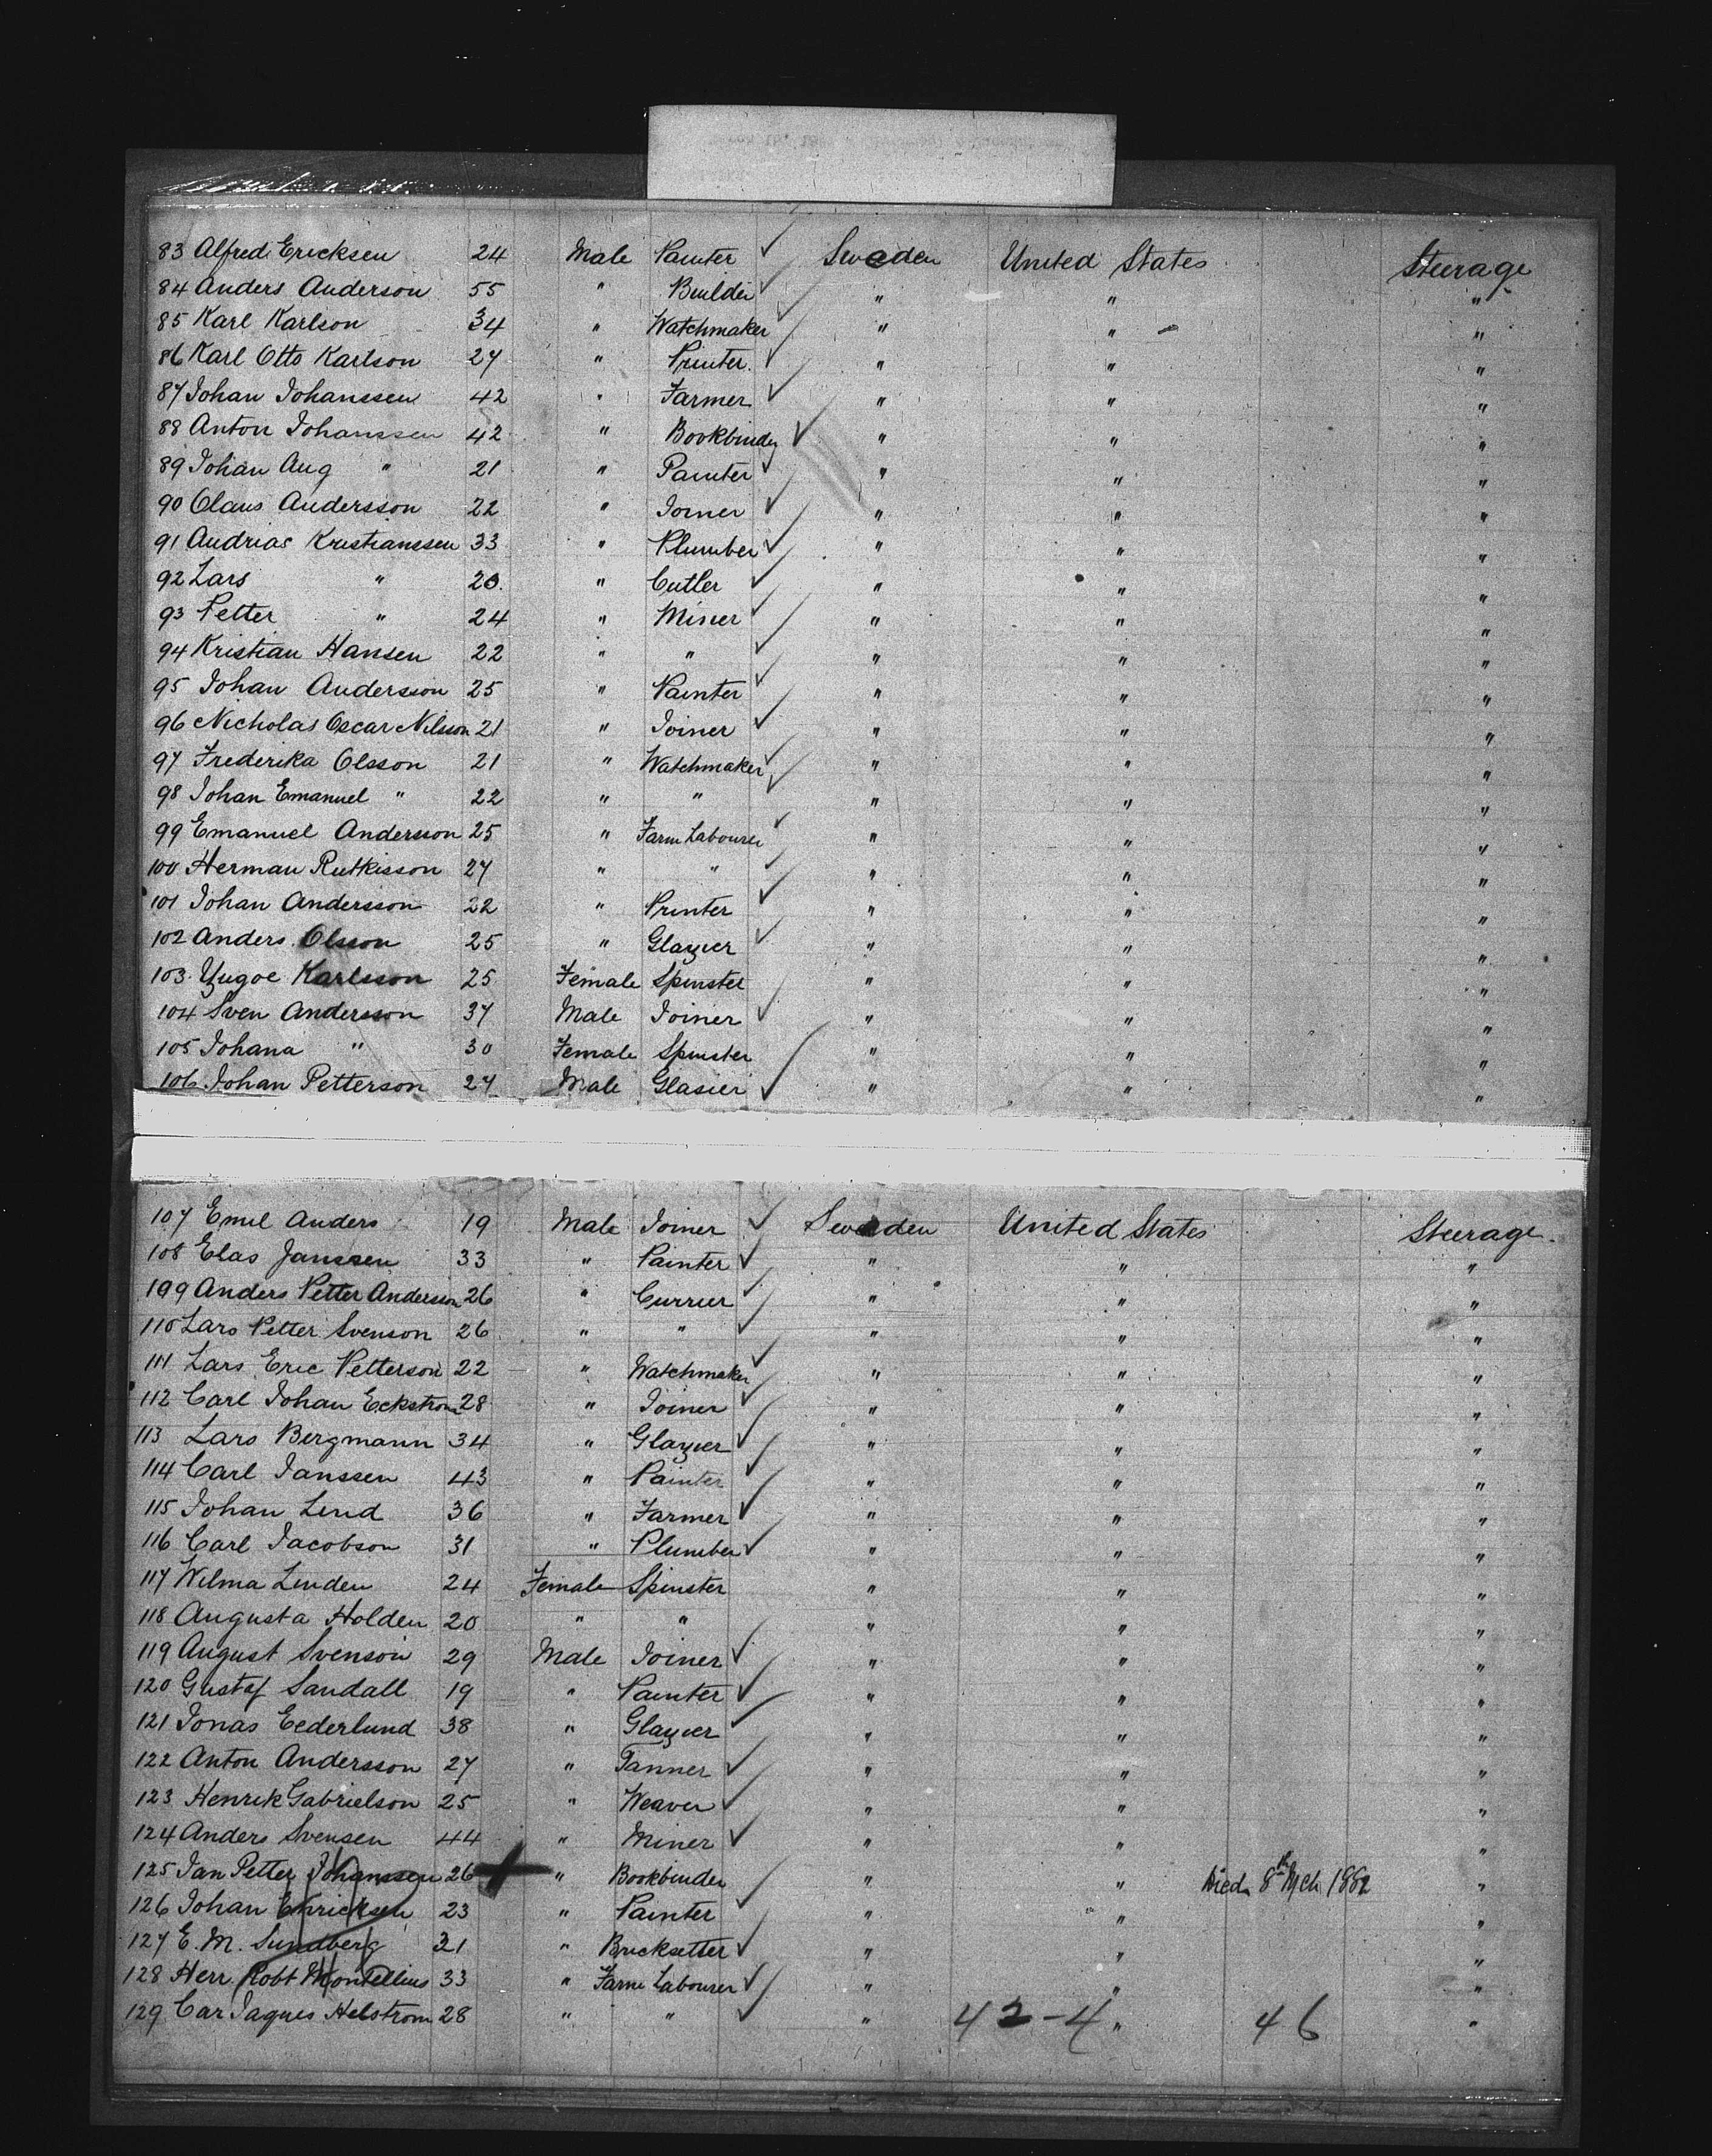 83 Alfred Ericksen 24 Male Painter ✓ Sweden United States Steerage
84 Anders Anderson 55 " Builder ✓ " " "
85 Karl Karlson 34 " Watchmaker ✓ " " "
86 Karl Otto Karlson 27 " Printer ✓ " " "
87 Johan Johanssen 42 " Farmer ✓ " " "
88 Anton Johanssen 42 " Bookbinder ✓ " " "
89 Johan Aug " 21 " Painter ✓ " " "
90 Olaus Andersson 22 " Joiner ✓ " " "
91 Andrias Kristianssen 33 " Plumber ✓ " " "
92 Lars " 20 " Cutler ✓ " " "
93 Petter " 24 " Miner ✓ " " "
94 Kristian Hansen 22 " " ✓ " " "
95 Johan Andersson 25 " Painter ✓ " " "
96 Nicholas Oscar Nilsson 21 " Joiner ✓ " " "
97 Frederika Olsson 21 " Watchmaker ✓ " " "
98 Johan Emanuel " 22 " " ✓ " " "
99 Emanuel Andersson 25 " Farm Labourer ✓ " " "
100 Herman Rutkisson 27 " " ✓ " " "
101 Johan Andersson 22 " Printer ✓ " " "
102 Anders Olsson 25 " Glazier ✓ " " "
103 Karlsson 25 Female Spinster " " "
104 Sven Andersson 37 Male Joiner ✓ " " "
105 Johana " 30 Female Spinster " " "
106 Johan Petterson 27 Male Glasier ✓ " " "
107 Emil Anders 19 Male Joiner ✓ Sweden United States Steerage
108 Elas Janssen 33 " Painter ✓ " " "
109 Anders Petter Anderson 26 " Currier ✓ " " "
110 Lars Petter Svenson 26 " " ✓ " " "
111 Lars Eric Petterson 22 " Watchmaker ✓ " " "
112 Carl Johan Eckstrom 28 " Joiner ✓ " " "
113 Lars Bergmann 34 " Glazier ✓ " " "
114 Carl Janssen 43 " Painter ✓ " " "
115 Johan Lind 36 " Farmer ✓ " " "
116 Carl Jacobson 31 " Plumber ✓ " " "
117 Wilma Linden 24 Female Spinster " " "
118 Augusta Holden 20 " " " " "
119 August Svenson 29 Male Joiner ✓ " " "
120 Gustaf Sandall 19 " Painter ✓ " " "
121 Jonas Cederlund 38 " Glazier ✓ " " "
122 Anton Andersson 27 " Tanner ✓ " " "
123 Henrik Gabrielson 25 " Weaver ✓ " " "
124 Anders Svensen 44 " Miner ✓ " " "
125 Jan Petter Johanssen 26 " Bookbinder " " Died 8th Mch 1882 "
126 Johan Enricksen 23 " Painter ✓ " " "
127 E. M. Sundberg 31 " Bricksetter ✓ " " "
128 Herr. Robt Montellius 33 " Farm Labourer ✓ " " "
129 Car Jaques Helstrom 28 " " ✓ " 42-4 " 46 "